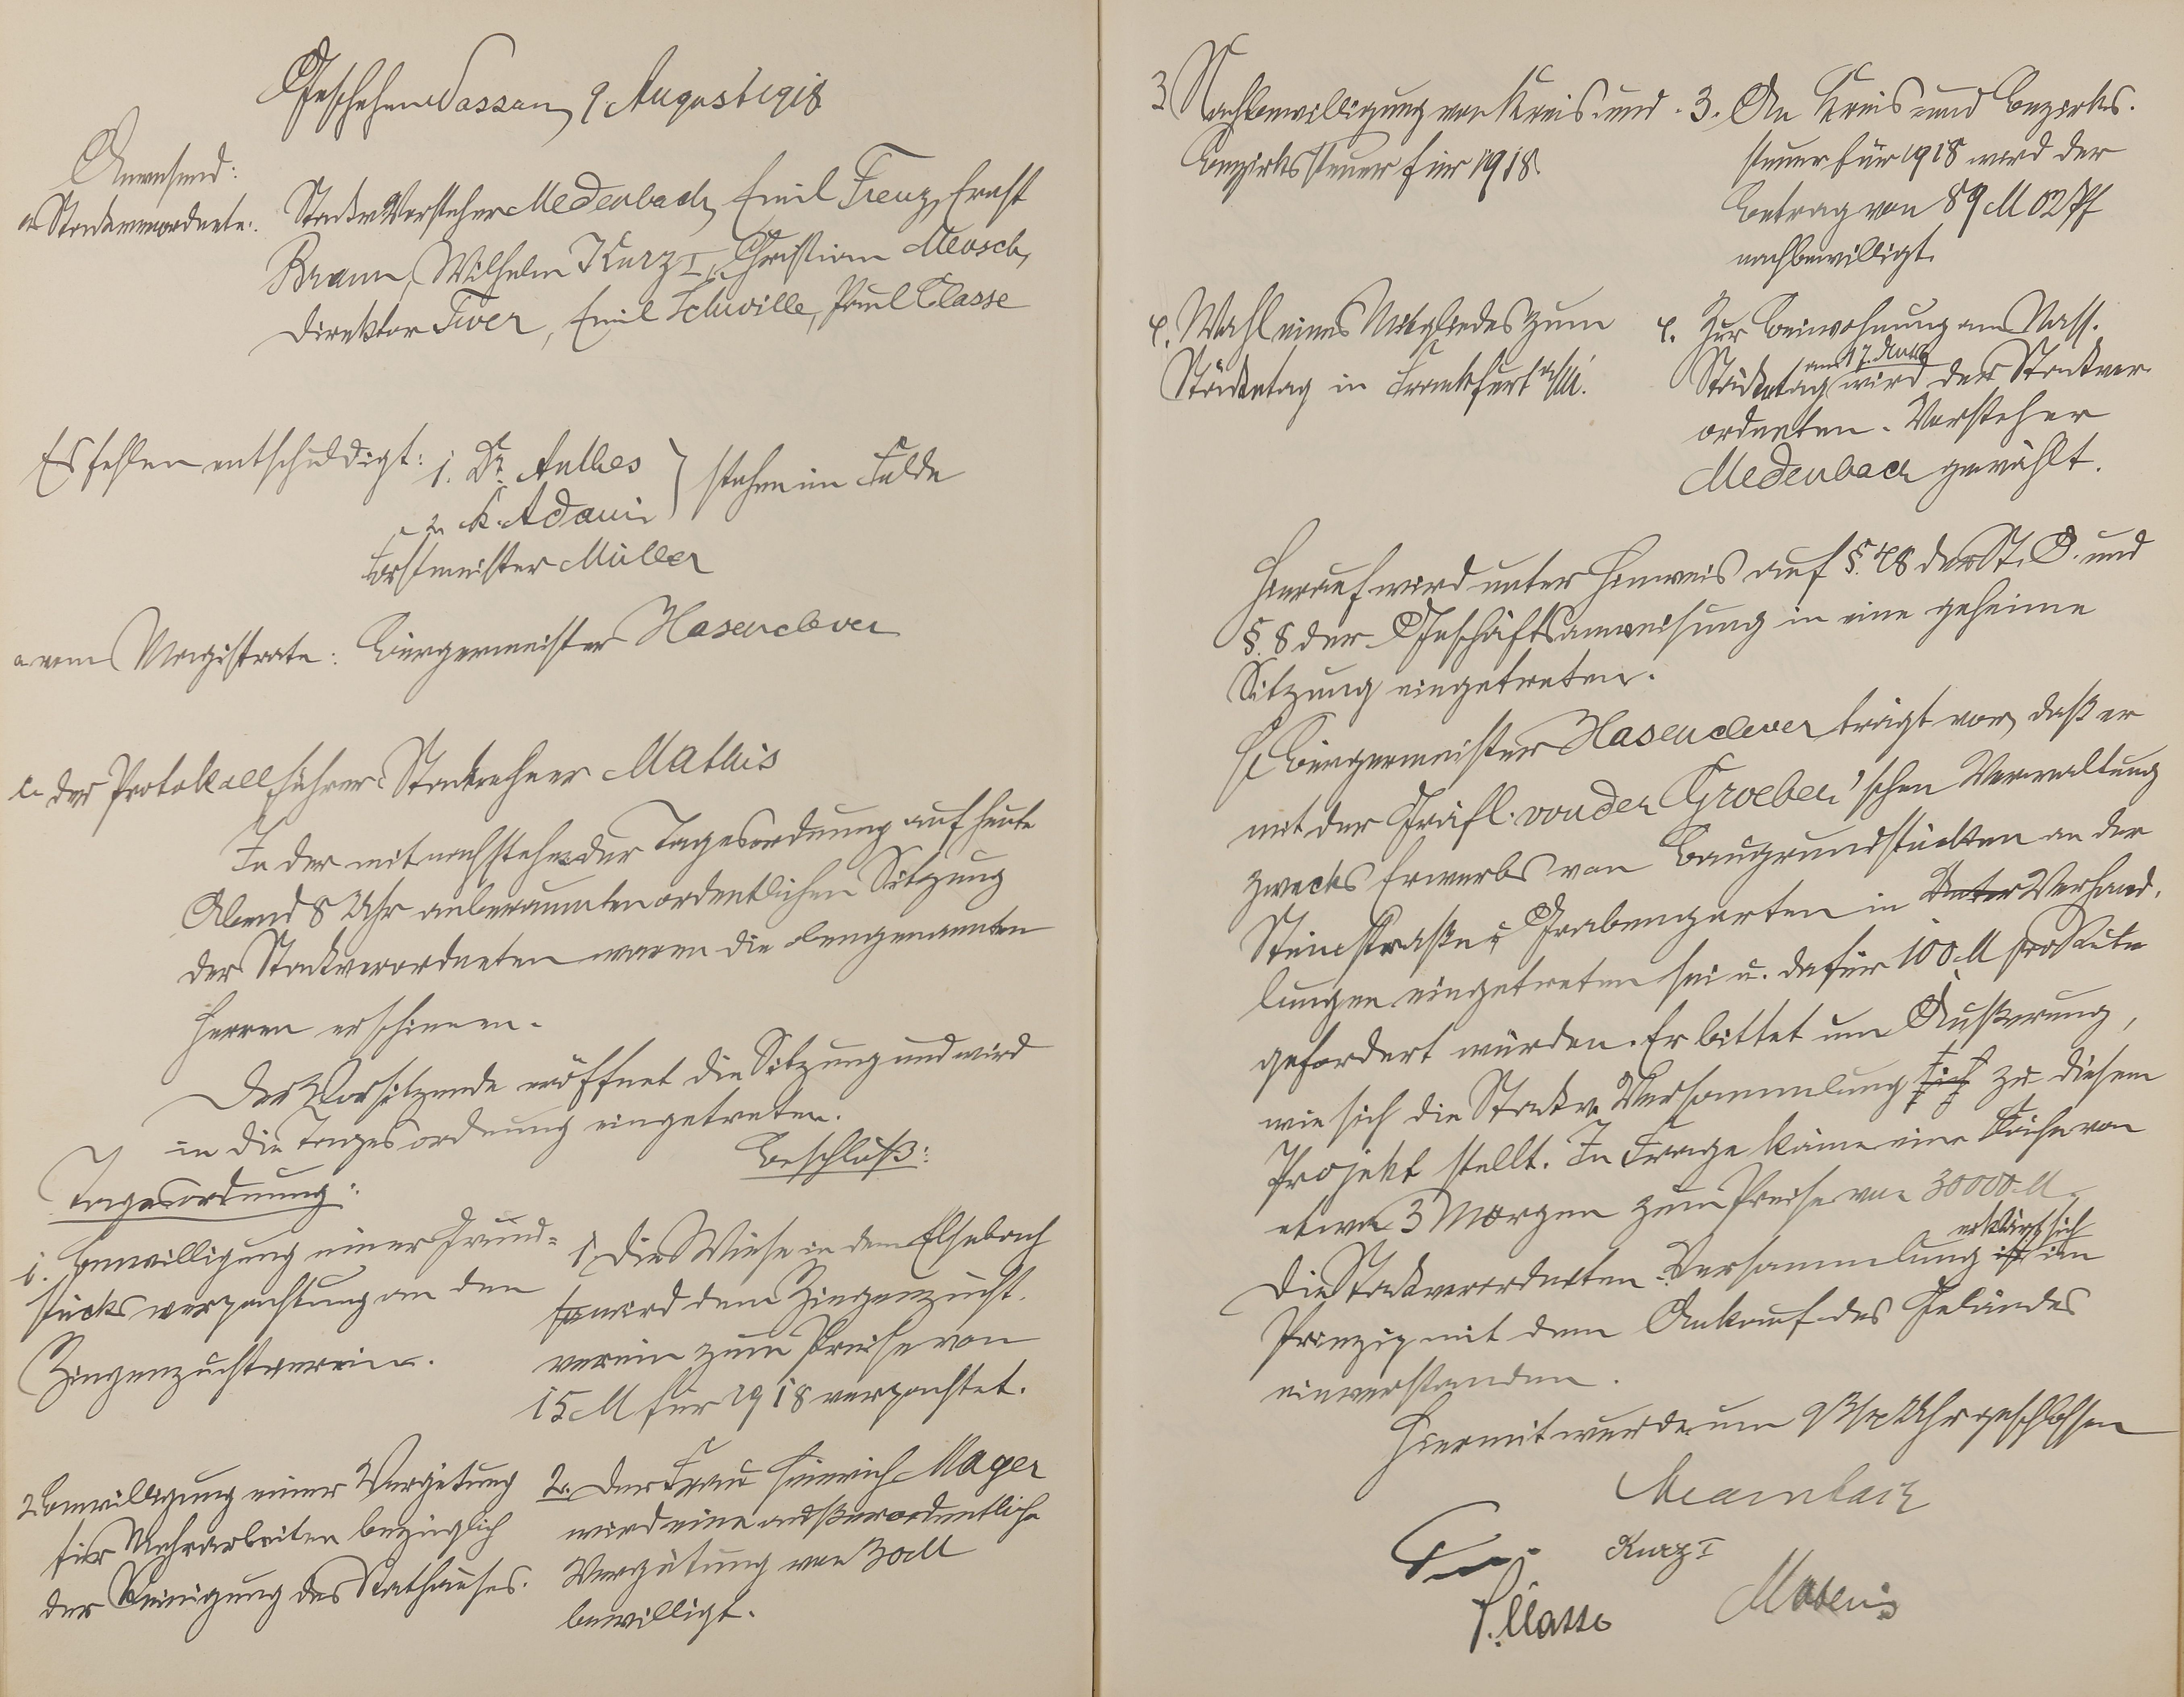 Geschehen Nassau, 9 August 1918
Anwesend:
a. Stadtverordnete:
Stadtv. Vorsteher Medenbach, Emil Treuz, Ernst
Braun, Wilhelm Kurz I, Christian Meusch,
Direktor Twer, Emil Schwille, Paul Classe
Es fehlen entschuldigt: 1. Dr. Anthes
2. K. Adami
} stehen im Felde
Forstmeister Müller
vom Magistrate: Bürgermeister Hasenclever
c. der Protokollführer: Stadtrechner Mathis
In der mit nachstehender Tagesordnung auf heute
Abend 8 Uhr anberaumten ordentlichen Sitzung
der Stadtverordneten waren die obengenannten
Herren erschienen.
Der Vorsitzende eröffnet die Sitzung und wird
in die Tagesordnung eingetreten.
Tagesordnung:
Beschluß:
1. Bewilligung einer Grund=
stücksverpachtung an den
Ziegenzuchtverein.
1. Die Wiese in dem Elsebach
wird dem Ziegenzucht-
verein zum Preise von
15 M für 1918 verpachtet.
2. Bewilligung einer Vergütung
für Mehrarbeiten bezüglich
der Reinigung des Rathauses.
2. Der Frau Heinrich Mager
wird eine außerordentliche
Vergütung von 30 M
bewilligt.
3 Nachbewilligung von Kreis- und
Bezirkssteuer für 1918.
3. An Kreis- und Bezirks-
steuer für 1918 wird der
Betrag von 89 M 02 Pf
nachbewilligt.
4. Wahl eines Mitgliedes zum
Städtetag in Frankfurt a/M.
4. Zur Beiwohnung am Nass.
am 17. Aug.
Städtetag wird der Stadtver-
ordneten-Vorsteher
Medenbach gewählt.
Hierauf wird unter Hinweis auf §. 48 der St. O. und
§. 8 der Geschäftsanweisung in eine geheime
Sitzung eingetreten.
H. Bürgermeister Hasenclever trägt vor, daß er
mit der Gräfl. von der Groeben'schen Verwaltung
zwecks Erwerbs von Baugrundstücken an der
Steinstraße u. Grabengarten in Unter Verhand-
lungen eingetreten sei u. dafür 100 M pro Rute
gefordert würden. Er bittet um Äußerung,
wie sich die Stadtv. Versammlung sich zu diesem
Projekt stellt. In Frage käme eine Fläche von
etwa 3 Morgen zum Preise von 30000 M.
erklärt sich
Die Stadtverordneten-Versammlung ist im
Prinzip mit dem Ankauf des Geländes
einverstanden.
Hiermit wurde um 9 3/4 Uhr geschlossen
Medenbach
Kurz I
P. Classe
Mathis